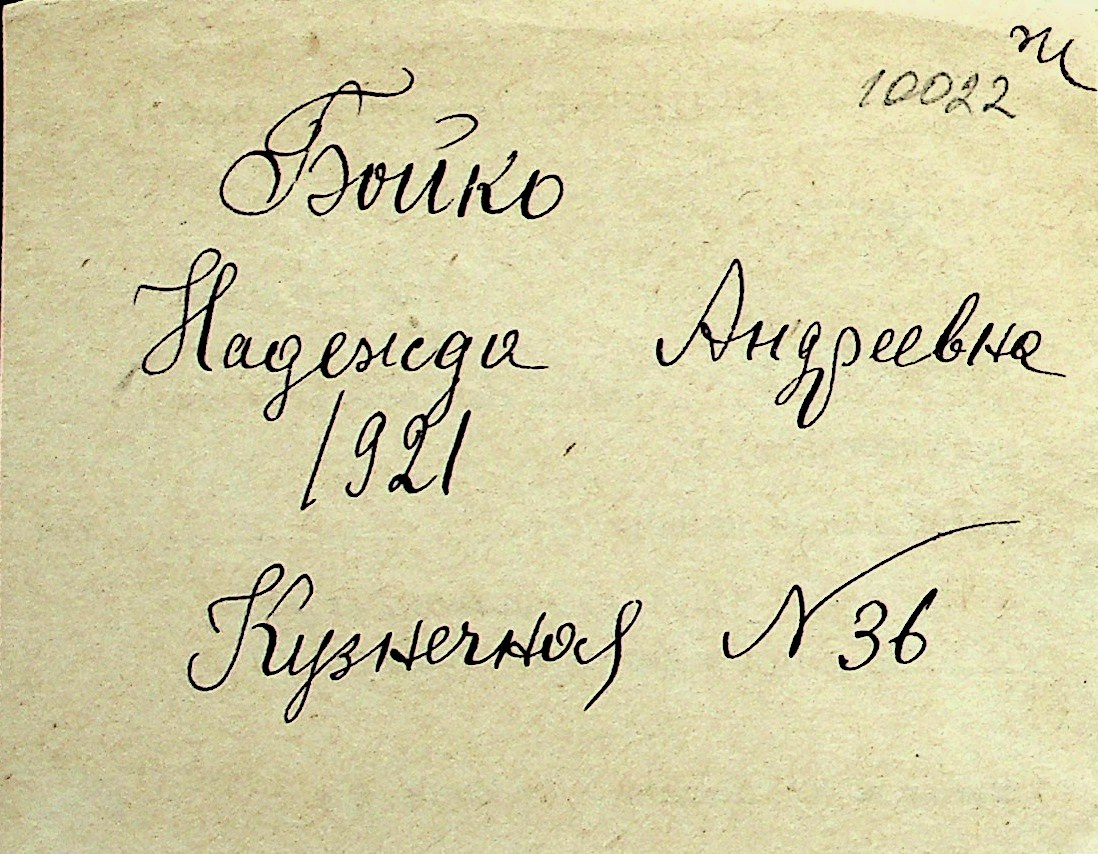 ж
10022
Бойко
Надежда Андреевна
1921
Кузнечная N 36